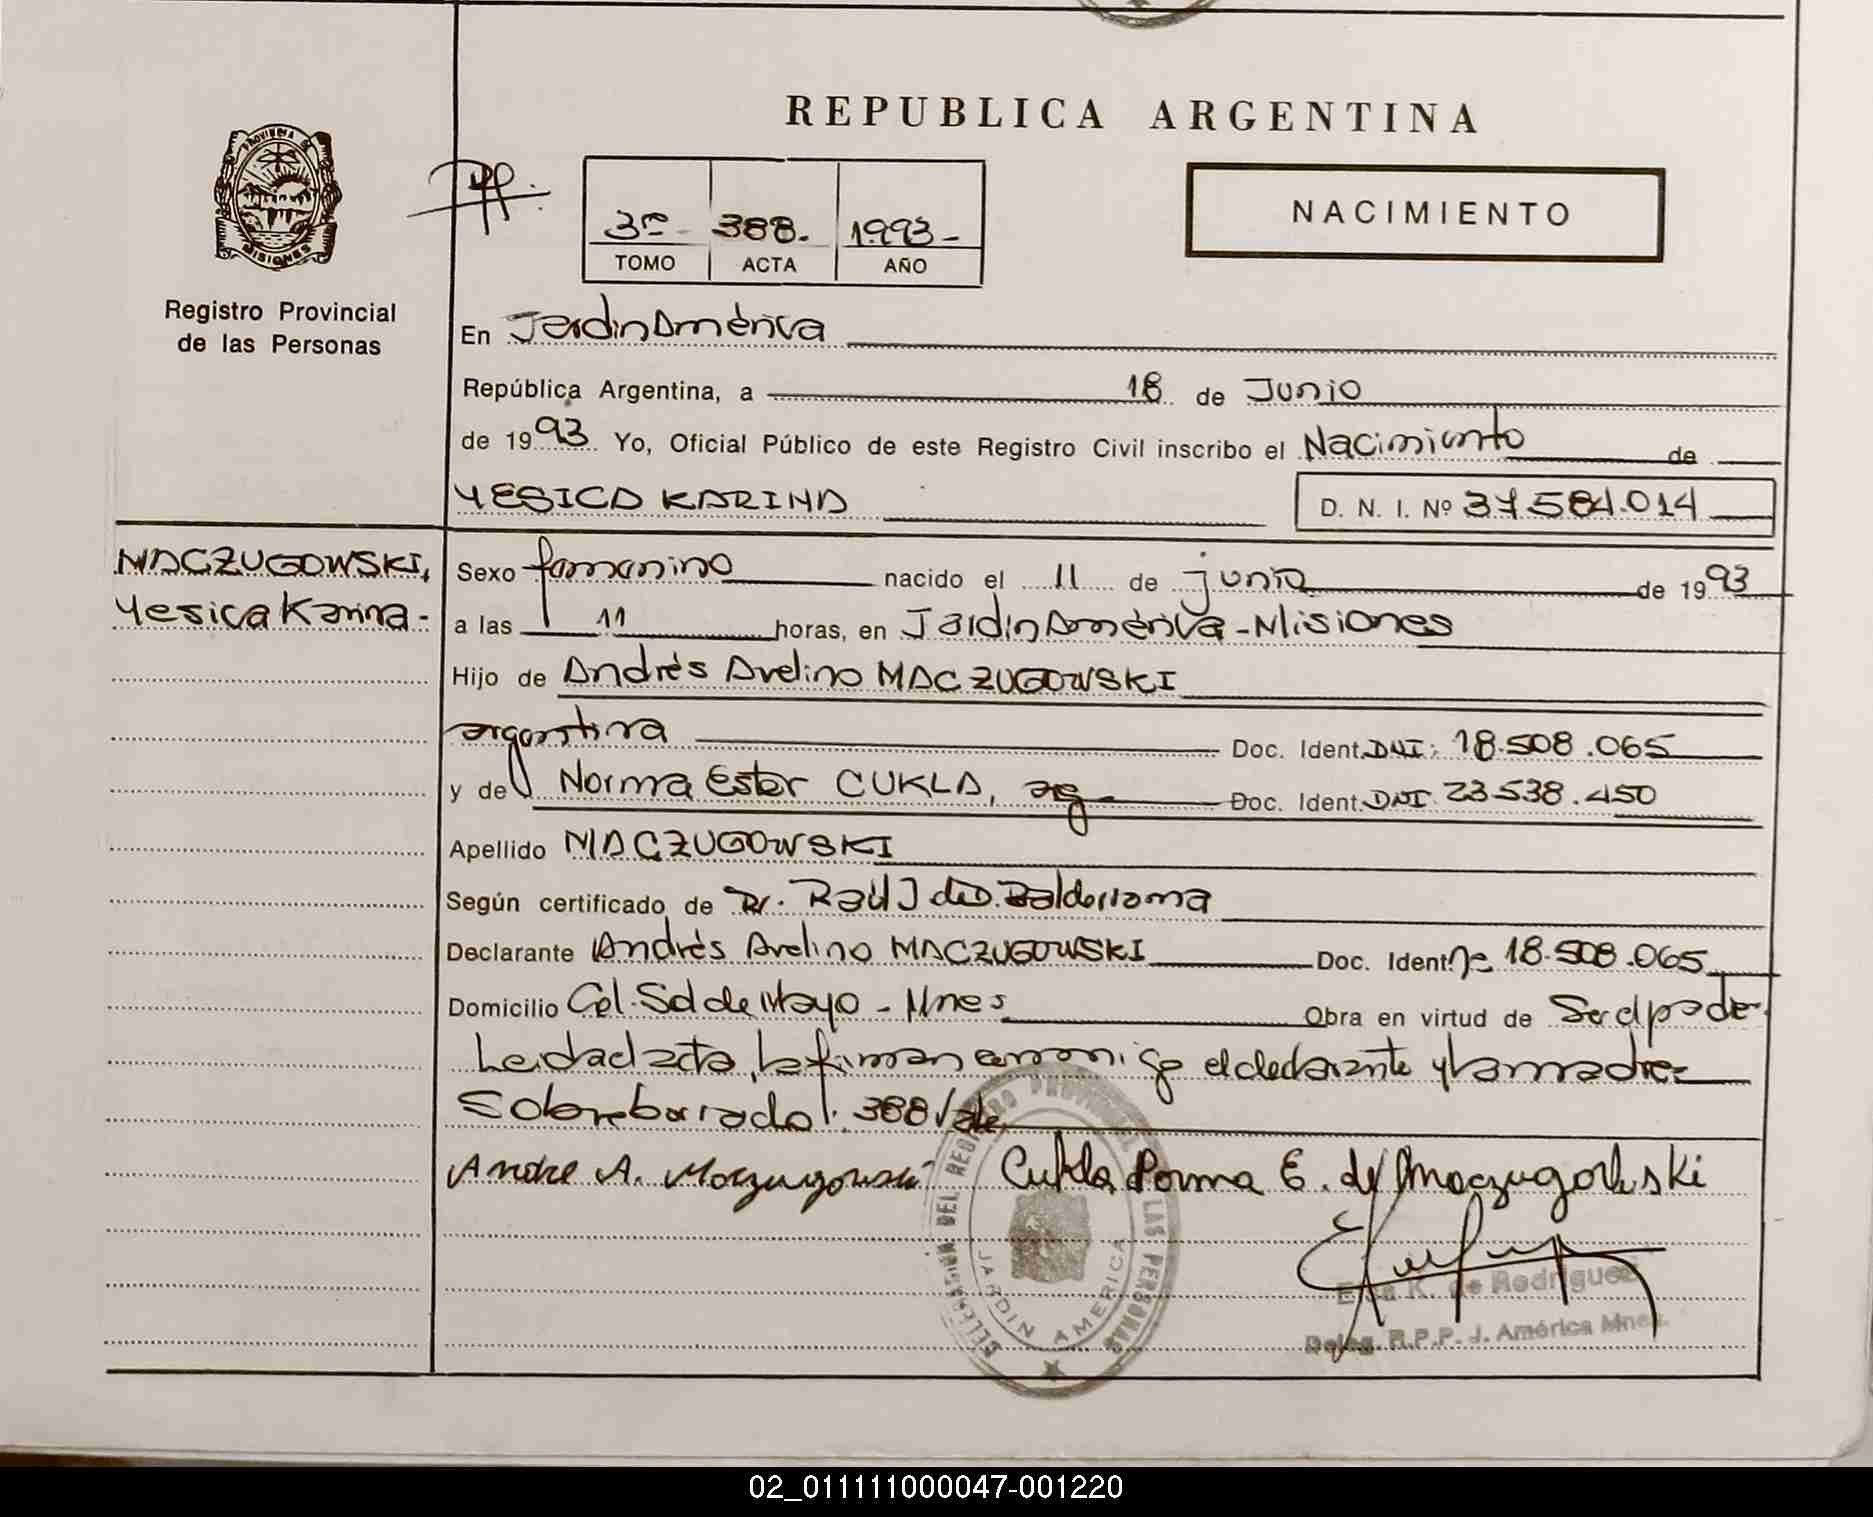 REPUBLICA ARGENTINA
PROVINCIA DE MISIONES
Registro Provincial
de las Personas
3º - 388. 1993 -
TOMO ACTA AÑO
NACIMIENTO
En Jardin América
República Argentina, a 18 de Junio
de 1993 Yo, Oficial Público de este Registro Civil inscribo el Nacimiento de
YESICA KARINA D. N. I. Nº 37.584.014
MACZUGOWSKI,
Yesica Karina -
Sexo femenino nacido el 11 de junio de 1993
a las 11 horas, en Jardin América - Misiones
Hijo de Andrés Avelino MACZUGOWSKI
argentina Doc. Ident. DNI: 18.508.065
y de Norma Ester CUKLA, arg Doc. Ident. DNI 23.538.450
Apellido MACZUGOWSKI
Según certificado de Dr. Raúl J de D. Balderrama
Declarante Andrés Avelino MACZUGOWSKI Doc. Ident. 18.508.065
Domicilio Col. Sol de Mayo - Mnes Obra en virtud de Ser el padre.
Leida el acta, la firman conmigo el declarante y la madre -
Sobreborrado: 388 Vale
Andre A. Maczugowski Cukla Norma E. de Maczugowski
DELEGACION DEL REGISTRO PROVINCIAL DE LAS PERSONAS
JARDIN AMERICA
Elsa K. de Rodriguez
Deleg. R.P.P. J. América Mnes.
02_011111000047-001220